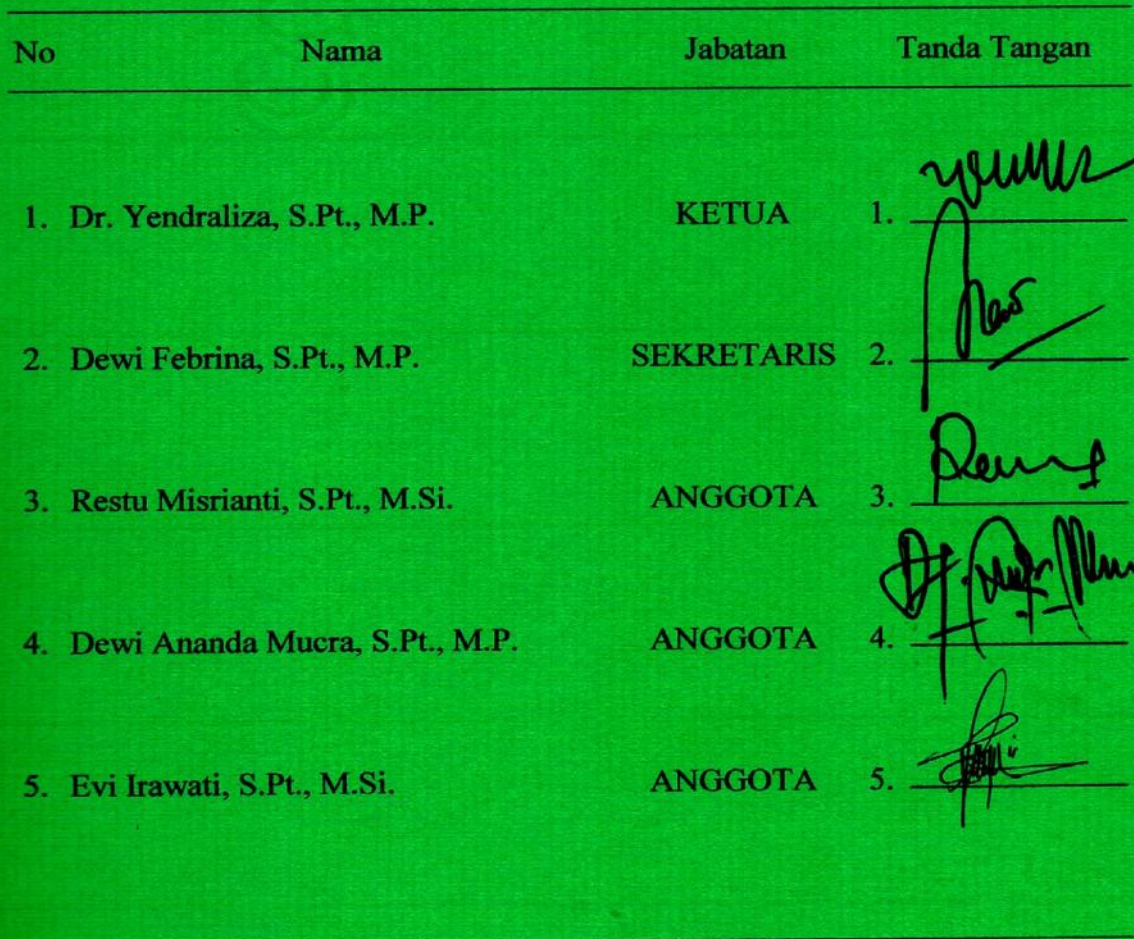 No Nama Jabatan Tanda Tangan
1. Dr. Yendraliza, S.Pt., M.P. KETUA 1.
2. Dewi Febrina, S.Pt., M.P. SEKRETARIS 2.
3. Restu Misrianti, S.Pt., M.Si. ANGGOTA 3.
4. Dewi Ananda Mucra, S.Pt., M.P. ANGGOTA 4.
5. Evi Irawati, S.Pt., M.Si. ANGGOTA 5.